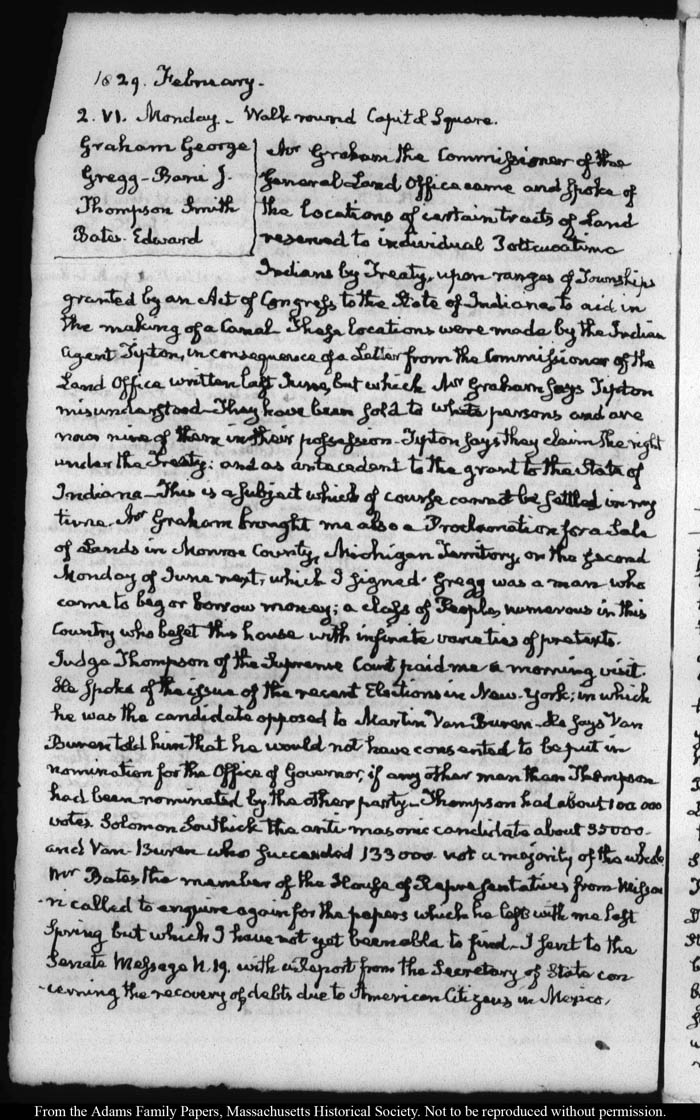 1829. February.
2. VI. Monday. - Walk round Capitol Square.
Graham George
Gregg
Thompson Smith
Bates. Edward
Mr Graham the Commissioner of the
General Land Office came and spoke of
the locations of certain tracts of Land
reserved to individual Pottawatima
Indians by Treaty, upon ranges of Townships
granted by an Act of Congress to the State of Indiana, to aid in
the making of a Canal. These locations were made by the Indian
Agent Tipton, in consequence of a Letter from the Commissioner of the
Land Office written last June, but which Mr Graham says Tipton
misunderstood - They have been sold to white persons and are
now nine of them in their possession - Tipton says they claim the right
under the Treaty: and as antecedent to the grant to the State of
Indiana - This is a subject which of course cannot be settled in my
time. Mr Graham brought me also a Proclamation for a Sale
of Lands in Monroe County, Michigan Territory, on the second
Monday of June next, which I signed. Gregg was a man who
came to beg or borrow money; a class of People, numerous in this
Country who beset this house with infinite varieties of pretexts.
Judge Thompson of the Supreme Court paid me a morning visit.
He spoke of the issue of the recent Elections in New-York; in which
he was the candidate opposed to Martin Van Buren - He says Van
Buren told him that he would not have consented to be put in
nomination for the Office of Governor, if any other man than Thompson
had been nominated by the other party - Thompson had about 100 000
votes. Solomon Southick the anti masonic candidate about 35000 -
and Van-Buren who succeeded 133000 not a majority of the whole
Mr Bates the member of the House of Representatives from Missou
-ri called to enquire again for the papers which he left with me last
Spring but which I have not yet been able to find - I sent to the
Senate Message N. 19. with a Report from the Secretary of State con
-cerning the recovery of debts due to American Citizens in Mexico.
From the Adams Family Papers, Massachusetts Historical Society. Not to be reproduced without permission.